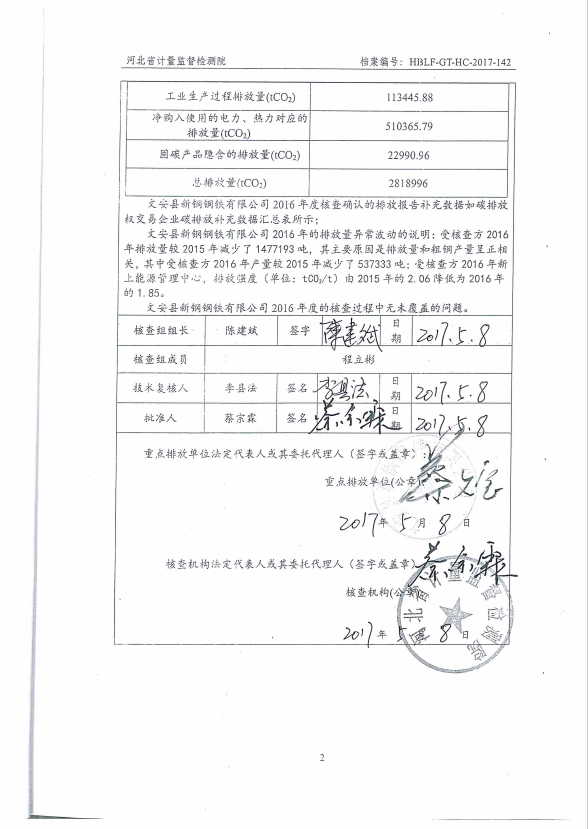 河北省计量监督检测院 档案编号：HBLF-GT-HC-2017-142
工业生产过程排放量(tCO₂) 113445.88
净购入使用的电力、热力对应的
排放量(tCO₂) 510365.79
固碳产品隐含的排放量(tCO₂) 22990.96
总排放量(tCO₂) 2818996
文安县新钢钢铁有限公司 2016 年度核查确认的排放报告补充数据如碳排放
权交易企业碳排放补充数据汇总表所示；
文安县新钢钢铁有限公司 2016 年的排放量异常波动的说明：受核查方 2016
年排放量较 2015 年减少了 1477193 吨，其主要原因是排放量和粗钢产量呈正相
关，其中受核查方 2016 年产量较 2015 年减少了 537333 吨；受核查方 2016 年新
上能源管理中心，排放强度（单位：tCO₂/t）由 2015 年的 2.06 降低为 2016 年
的 1.85。
文安县新钢钢铁有限公司 2016 年度的核查过程中无未覆盖的问题。
核查组组长 陈建斌 签字 陈建斌 日期 2017.5.8
核查组成员 程立彬
技术复核人 李县法 签名 李县法 日期 2017.5.8
批准人 蔡宗霖 签名 蔡宗霖 日期 2017.5.8
重点排放单位法定代表人或其委托代理人（签字或盖章）：
重点排放单位(公章)
2017 年 5 月 8 日
核查机构法定代表人或其委托代理人（签字或盖章） 蔡宗霖
核查机构(公章)
2017 年 5 月 8 日
河北省计量监督检测院
2